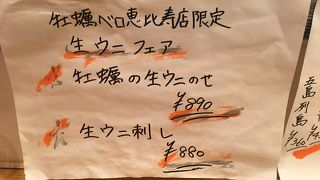 牡蠣ベロ恵比寿店限定
生ウニフェア
牡蠣の生ウニのせ
¥890
生ウニ刺し
¥880
五島列島
¥360